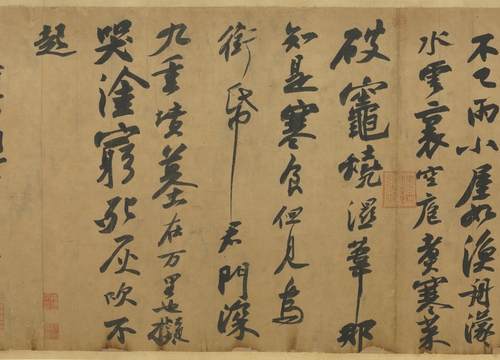 不已雨小屋如漁舟濛々
水雲裏空庖煮寒菜
破竈燒濕葦那
知是寒食但見烏
銜帋君門深
九重墳墓在万里也擬
哭塗窮死灰吹不
起